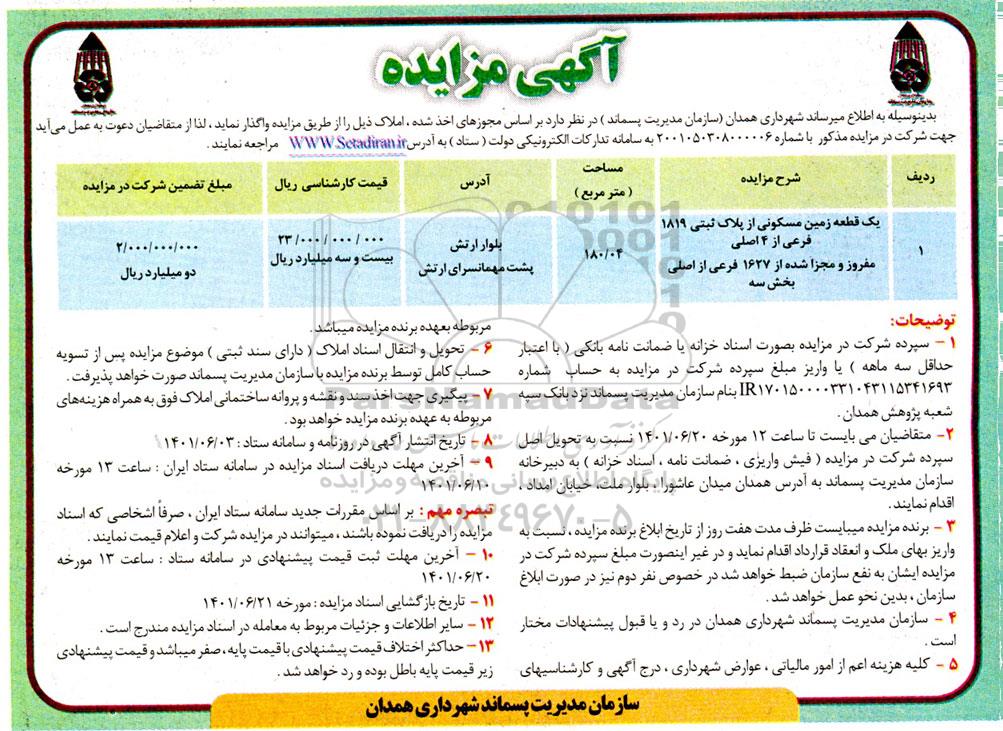 آگهی مزایده
بدینوسیله به اطلاع میرساند شهرداری همدان (سازمان مدیریت پسماند ) در نظر دارد بر اساس مجوزهای اخذ شده ، املاک ذیل را از طریق مزایده واگذار نماید ، لذا از متقاضیان دعوت به عمل می‌آید
جهت شرکت در مزایده مذکور با شماره ۲۰۰۱۰۵۰۳۰۸۰۰۰۰۰۶ به سامانه تدارکات الکترونیکی دولت ( ستاد ) به آدرس WWW.Setadiran.ir مراجعه نمایند .
ردیف
شرح مزایده
مساحت
( متر مربع )
آدرس
قیمت کارشناسی ریال
مبلغ تضمین شرکت در مزایده
۱
یک قطعه زمین مسکونی از پلاک ثبتی ۱۸۱۹
فرعی از ۴ اصلی
مفروز و مجزا شده از ۱۶۲۷ فرعی از اصلی
بخش سه
۱۸۰/۰۴
بلوار ارتش
پشت مهمانسرای ارتش
۲۳ /۰۰۰ / ۰۰۰ / ۰۰۰
بیست و سه میلیارد ریال
۲/۰۰۰/۰۰۰/۰۰۰
دو میلیارد ریال
توضیحات:
۱ - سپرده شرکت در مزایده بصورت اسناد خزانه یا ضمانت نامه بانکی ( با اعتبار
حداقل سه ماهه ) یا واریز مبلغ سپرده شرکت در مزایده به حساب شماره
IR۱۷۰۱۵۰۰۰۰۳۳۱۰۴۳۱۱۵۳۴۱۶۹۳ بنام سازمان مدیریت پسماند نزد بانک سپه
شعبه پژوهش همدان .
۲- متقاضیان می بایست تا ساعت ۱۲ مورخه ۱۴۰۱/۰۶/۲۰ نسبت به تحویل اصل
سپرده شرکت در مزایده ( فیش واریزی ، ضمانت نامه ، اسناد خزانه ) به دبیرخانه
سازمان مدیریت پسماند به آدرس همدان میدان عاشورا ، بلوار ملت، خیابان امداد ،
اقدام نمایند.
۳ - برنده مزایده میبایست ظرف مدت هفت روز از تاریخ ابلاغ برنده مزایده ، نسبت به
واریز بهای ملک و انعقاد قرارداد اقدام نماید و در غیر اینصورت مبلغ سپرده شرکت در
مزایده ایشان به نفع سازمان ضبط خواهد شد در خصوص نفر دوم نیز در صورت ابلاغ
سازمان ، بدین نحو عمل خواهد شد .
۴ - سازمان مدیریت پسماند شهرداری همدان در رد و یا قبول پیشنهادات مختار
است .
۵ - کلیه هزینه اعم از امور مالیاتی ، عوارض شهرداری ، درج آگهی و کارشناسیهای
مربوطه بعهده برنده مزایده میباشد .
۶ - تحویل و انتقال اسناد املاک ( دارای سند ثبتی ) موضوع مزایده پس از تسویه
حساب کامل توسط برنده مزایده با سازمان مدیریت پسماند صورت خواهد پذیرفت .
۷ - پیگیری جهت اخذ سند و نقشه و پروانه ساختمانی املاک فوق به همراه هزینه‌های
مربوطه به عهده برنده مزایده خواهد بود .
۸ - تاریخ انتشار آگهی در روزنامه و سامانه ستاد : ۱۴۰۱/۰۶/۰۳
۹ - آخرین مهلت دریافت اسناد مزایده در سامانه ستاد ایران : ساعت ۱۳ مورخه
۱۴۰۱/۰۶/۱۰
تبصره مهم : بر اساس مقررات جدید سامانه ستاد ایران ، صرفاً اشخاصی که اسناد
مزایده را دریافت نموده باشند ، میتوانند در مزایده شرکت و اعلام قیمت نمایند .
۱۰ - آخرین مهلت ثبت قیمت پیشنهادی در سامانه ستاد : ساعت ۱۳ مورخه
۱۴۰۱/۰۶/۲۰
۱۱ - تاریخ بازگشایی اسناد مزایده : مورخه ۱۴۰۱/۰۶/۲۱
۱۲ - سایر اطلاعات و جزئیات مربوط به معامله در اسناد مزایده مندرج است .
۱۳ - حداکثر اختلاف قیمت پیشنهادی با قیمت پایه ، صفر میباشد و قیمت پیشنهادی
زیر قیمت پایه باطل بوده و رد خواهد شد .
سازمان مدیریت پسماند شهرداری همدان
ParsNamadData
پایگاه اطلاع رسانی مناقصه و مزایده
۰۲۱-۸۸۳۴۹۶۷۰-۵